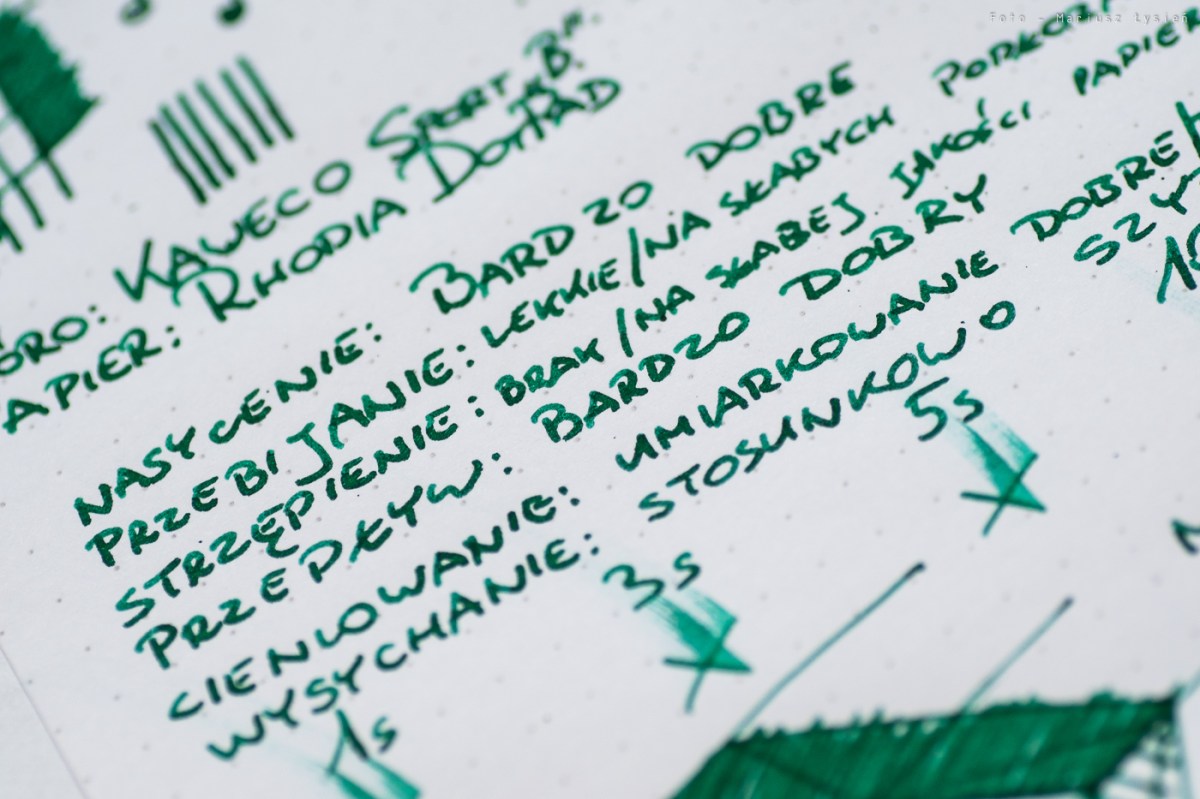 Foto - Mariusz Łysień
ÓRO: KAWECO SPORT "B"
APIER: RHODIA DOTPAD
NASYCENIE: BARDZO DOBRE
PRZEBIJANIE: LEKKIE/NA SŁABYCH
STRZĘPIENIE: BRAK/NA SŁABEJ JAKOŚCI PAPIER
PRZEPŁYW: BARDZO DOBRY
CIENIOWANIE: UMIARKOWANIE DOBRE/
WYSYCHANIE: STOSUNKOWO SZY
1s 3s 5s 10